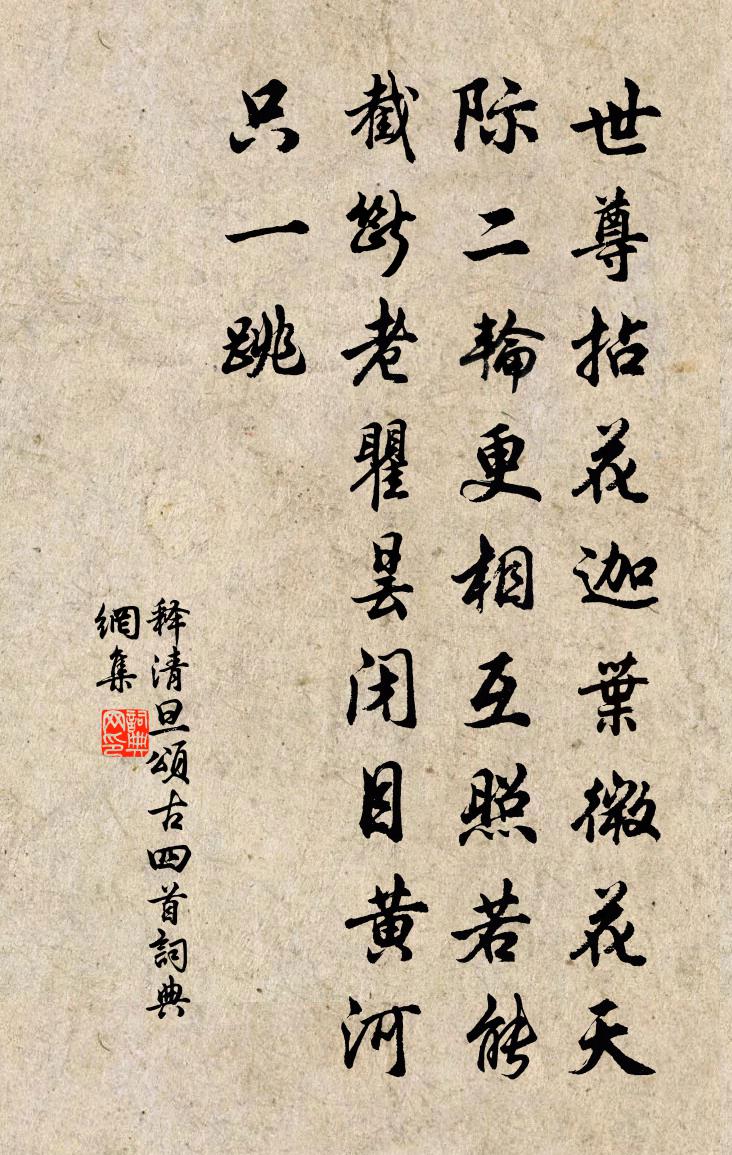 世尊拈花迦葉微花天
际二輪更相互照若能
截斷老瞿昙闭目黄河
只一跳
释清旦頌古四首詞典
網集
詞典
网印